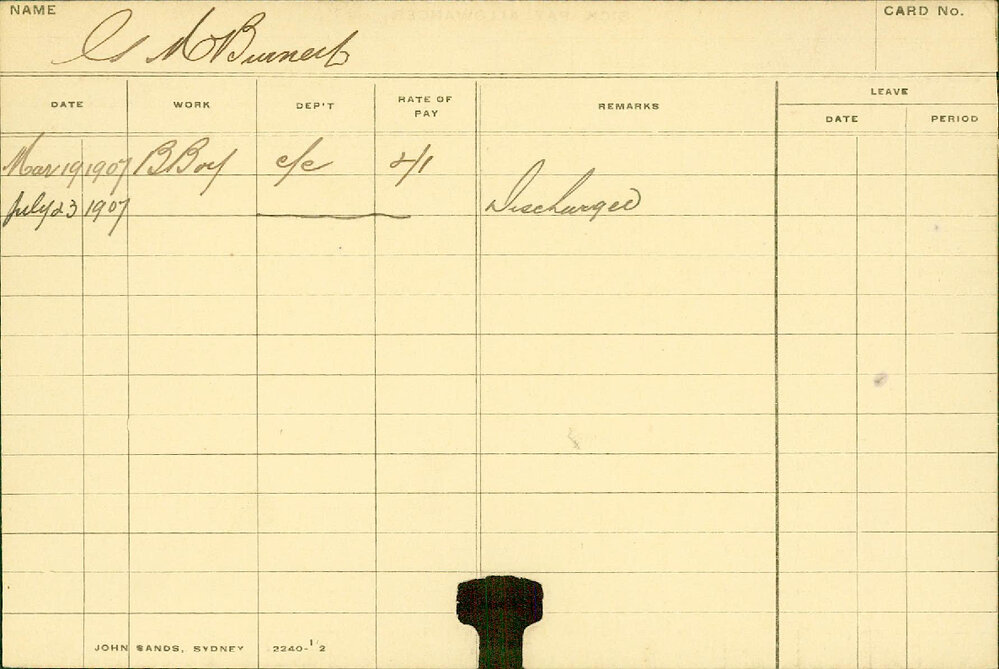 NAME
CARD No.
McBurnett
DATE WORK DEP'T RATE OF PAY REMARKS LEAVE
DATE PERIOD
Mar 19 1907 BBoy c/c
July 23 1907 Discharged
JOHN SANDS, SYDNEY 2240-1/2